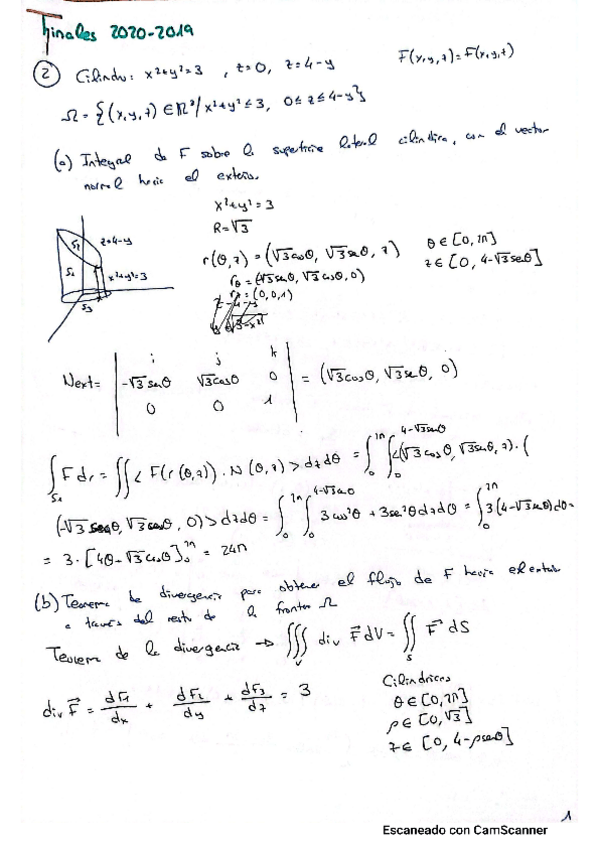 Finales 2020-2019
2 Cilindro: x²+y²=3 , z=0, z=4-y F(x,y,z)=F(x,y,z)
Ω = {(x,y,z) ∈ R³/ x²+y² ≤ 3, 0 ≤ z ≤ 4-y}
(a) Integral de F sobre la superficie lateral cilíndrica, con el vector
normal hacia el exterior.
x²+y²=3
R=√3
r(θ,z) = (√3cosθ, √3senθ, z) θ ∈ [0,2π]
z ∈ [0, 4-√3senθ]
rθ = (-√3senθ, √3cosθ, 0)
rz = (0,0,1)
S1 z=4-y
S2 x²+y²=3
S3
i j k
Next = | -√3senθ √3cosθ 0 | = (√3cosθ, √3senθ, 0)
0 0 1
∫ F dr = ∬ < F(r(θ,z)) · N(θ,z) > dzdθ = ∫₀^2π ∫₀^4-√3senθ <(√3cosθ, √3senθ, z) · (
(-√3senθ, √3senθ, 0)> dzdθ = ∫₀^2π ∫₀^4-√3senθ 3cos²θ + 3sen²θ dzdθ = ∫₀^2π 3(4-√3senθ)dθ =
= 3·[4θ-√3cosθ]₀^2π = 24π
(b) Teorema de divergencia para obtener el flujo de F hacia el exterior
a través del resto de la frontera Ω
Teorema de la divergencia → ∭ᵥ div F⃗ dV = ∬ₛ F⃗ dS
div F⃗ = dF1/dx + dF2/dy + dF3/dz = 3
Cilíndricas
θ ∈ [0,2π]
ρ ∈ [0,√3]
z ∈ [0, 4-ρsenθ]
1
Escaneado con CamScanner